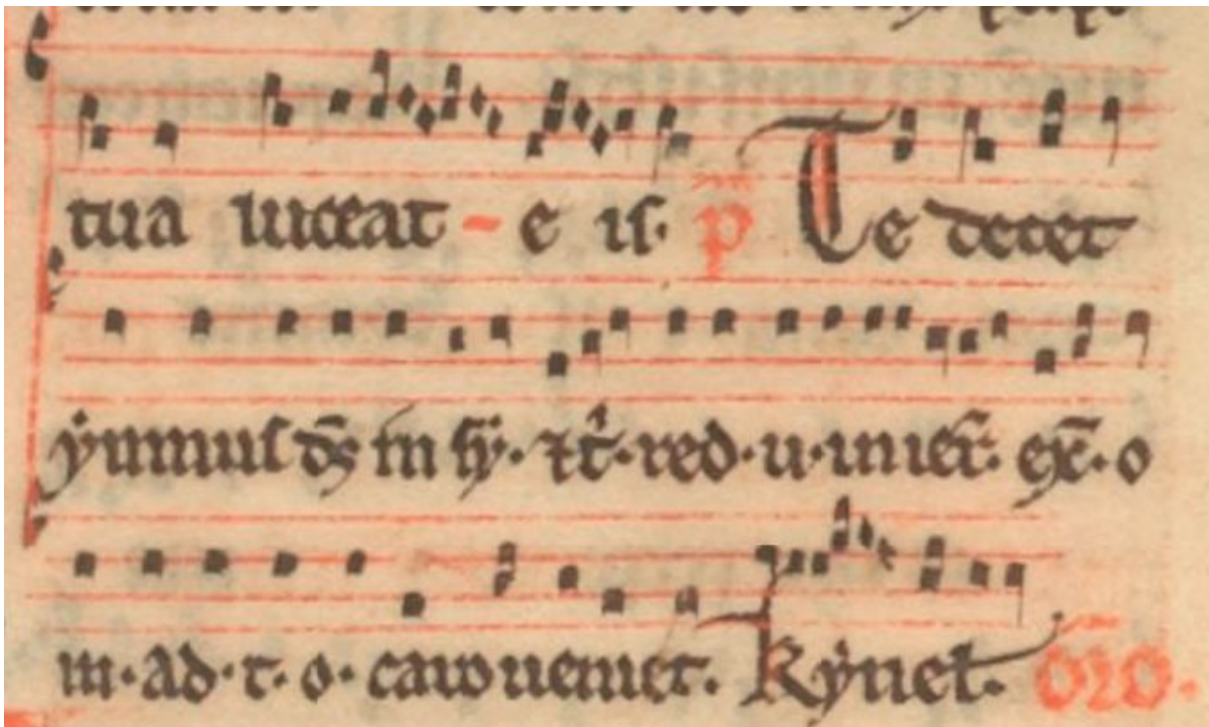 tua luceat - e is. p̄ Te decet
ẏmnus dꝰ in sẏ. ⁊ t̉. red. u. in ier̄. ex̄. o
m. ad. t. o. caro ueniet. Kẏriel. or̄o.